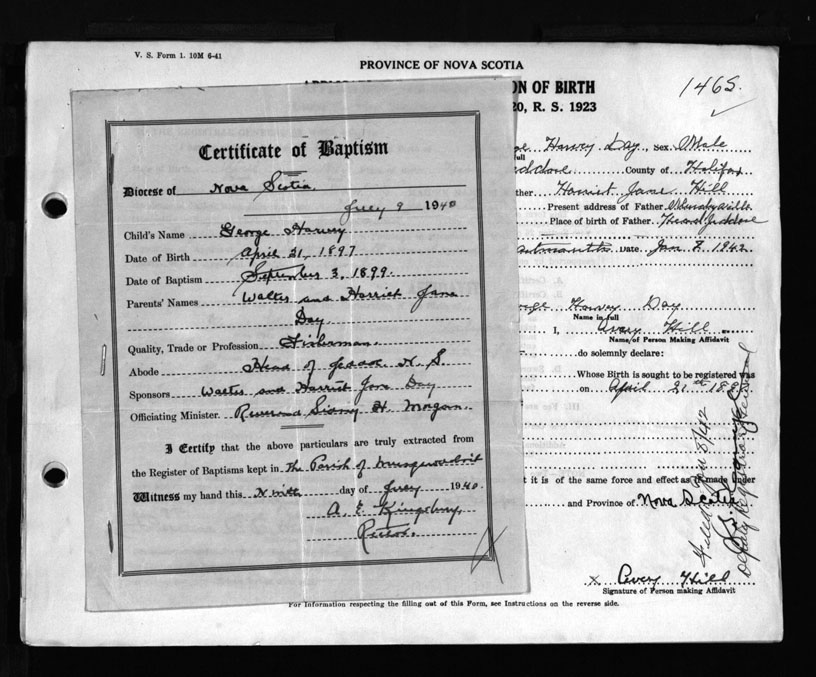 V. S. Form 1. 10M 6-41
PROVINCE OF NOVA SCOTIA
ON OF BIRTH
20, R. S. 1923
1465
Certificate of Baptism
Diocese of Nova Scotia
July 9 1940
Child's Name George Harvey
Date of Birth April 21, 1897
Date of Baptism September 3, 1899
Parents' Names Walter and Harriet Jane
Day
Quality, Trade or Profession Fisherman
Abode Head of Jeddore N. S.
Sponsors Walter and Harriet Jane Day
Officiating Minister. Reverend Sidney H. Morgan
I Certify that the above particulars are truly extracted from
the Register of Baptisms kept in The Parish of Musquodoboit
Witness my hand this Ninth day of July 1940
A. E. Kingsbury
Rector.
Harvey Day, Sex Male
full
County of Halifax
ther Harriet Jane Hill
Present address of Father
Place of birth of Father Head Jeddore
Date Jan. 8, 1942
rge Harvey Day
Name in full
I, Avery Hill
Name of Person Making Affidavit
do solemnly declare:
Whose Birth is sought to be registered was
on April 21st 189
t it is of the same force and effect as if made under
and Province of Nova Scotia
Filed Jan 8/42
Deputy Registrar General
x Avery Hill
Signature of Person making Affidavit
For Information respecting the filling out of this Form, see Instructions on the reverse side.